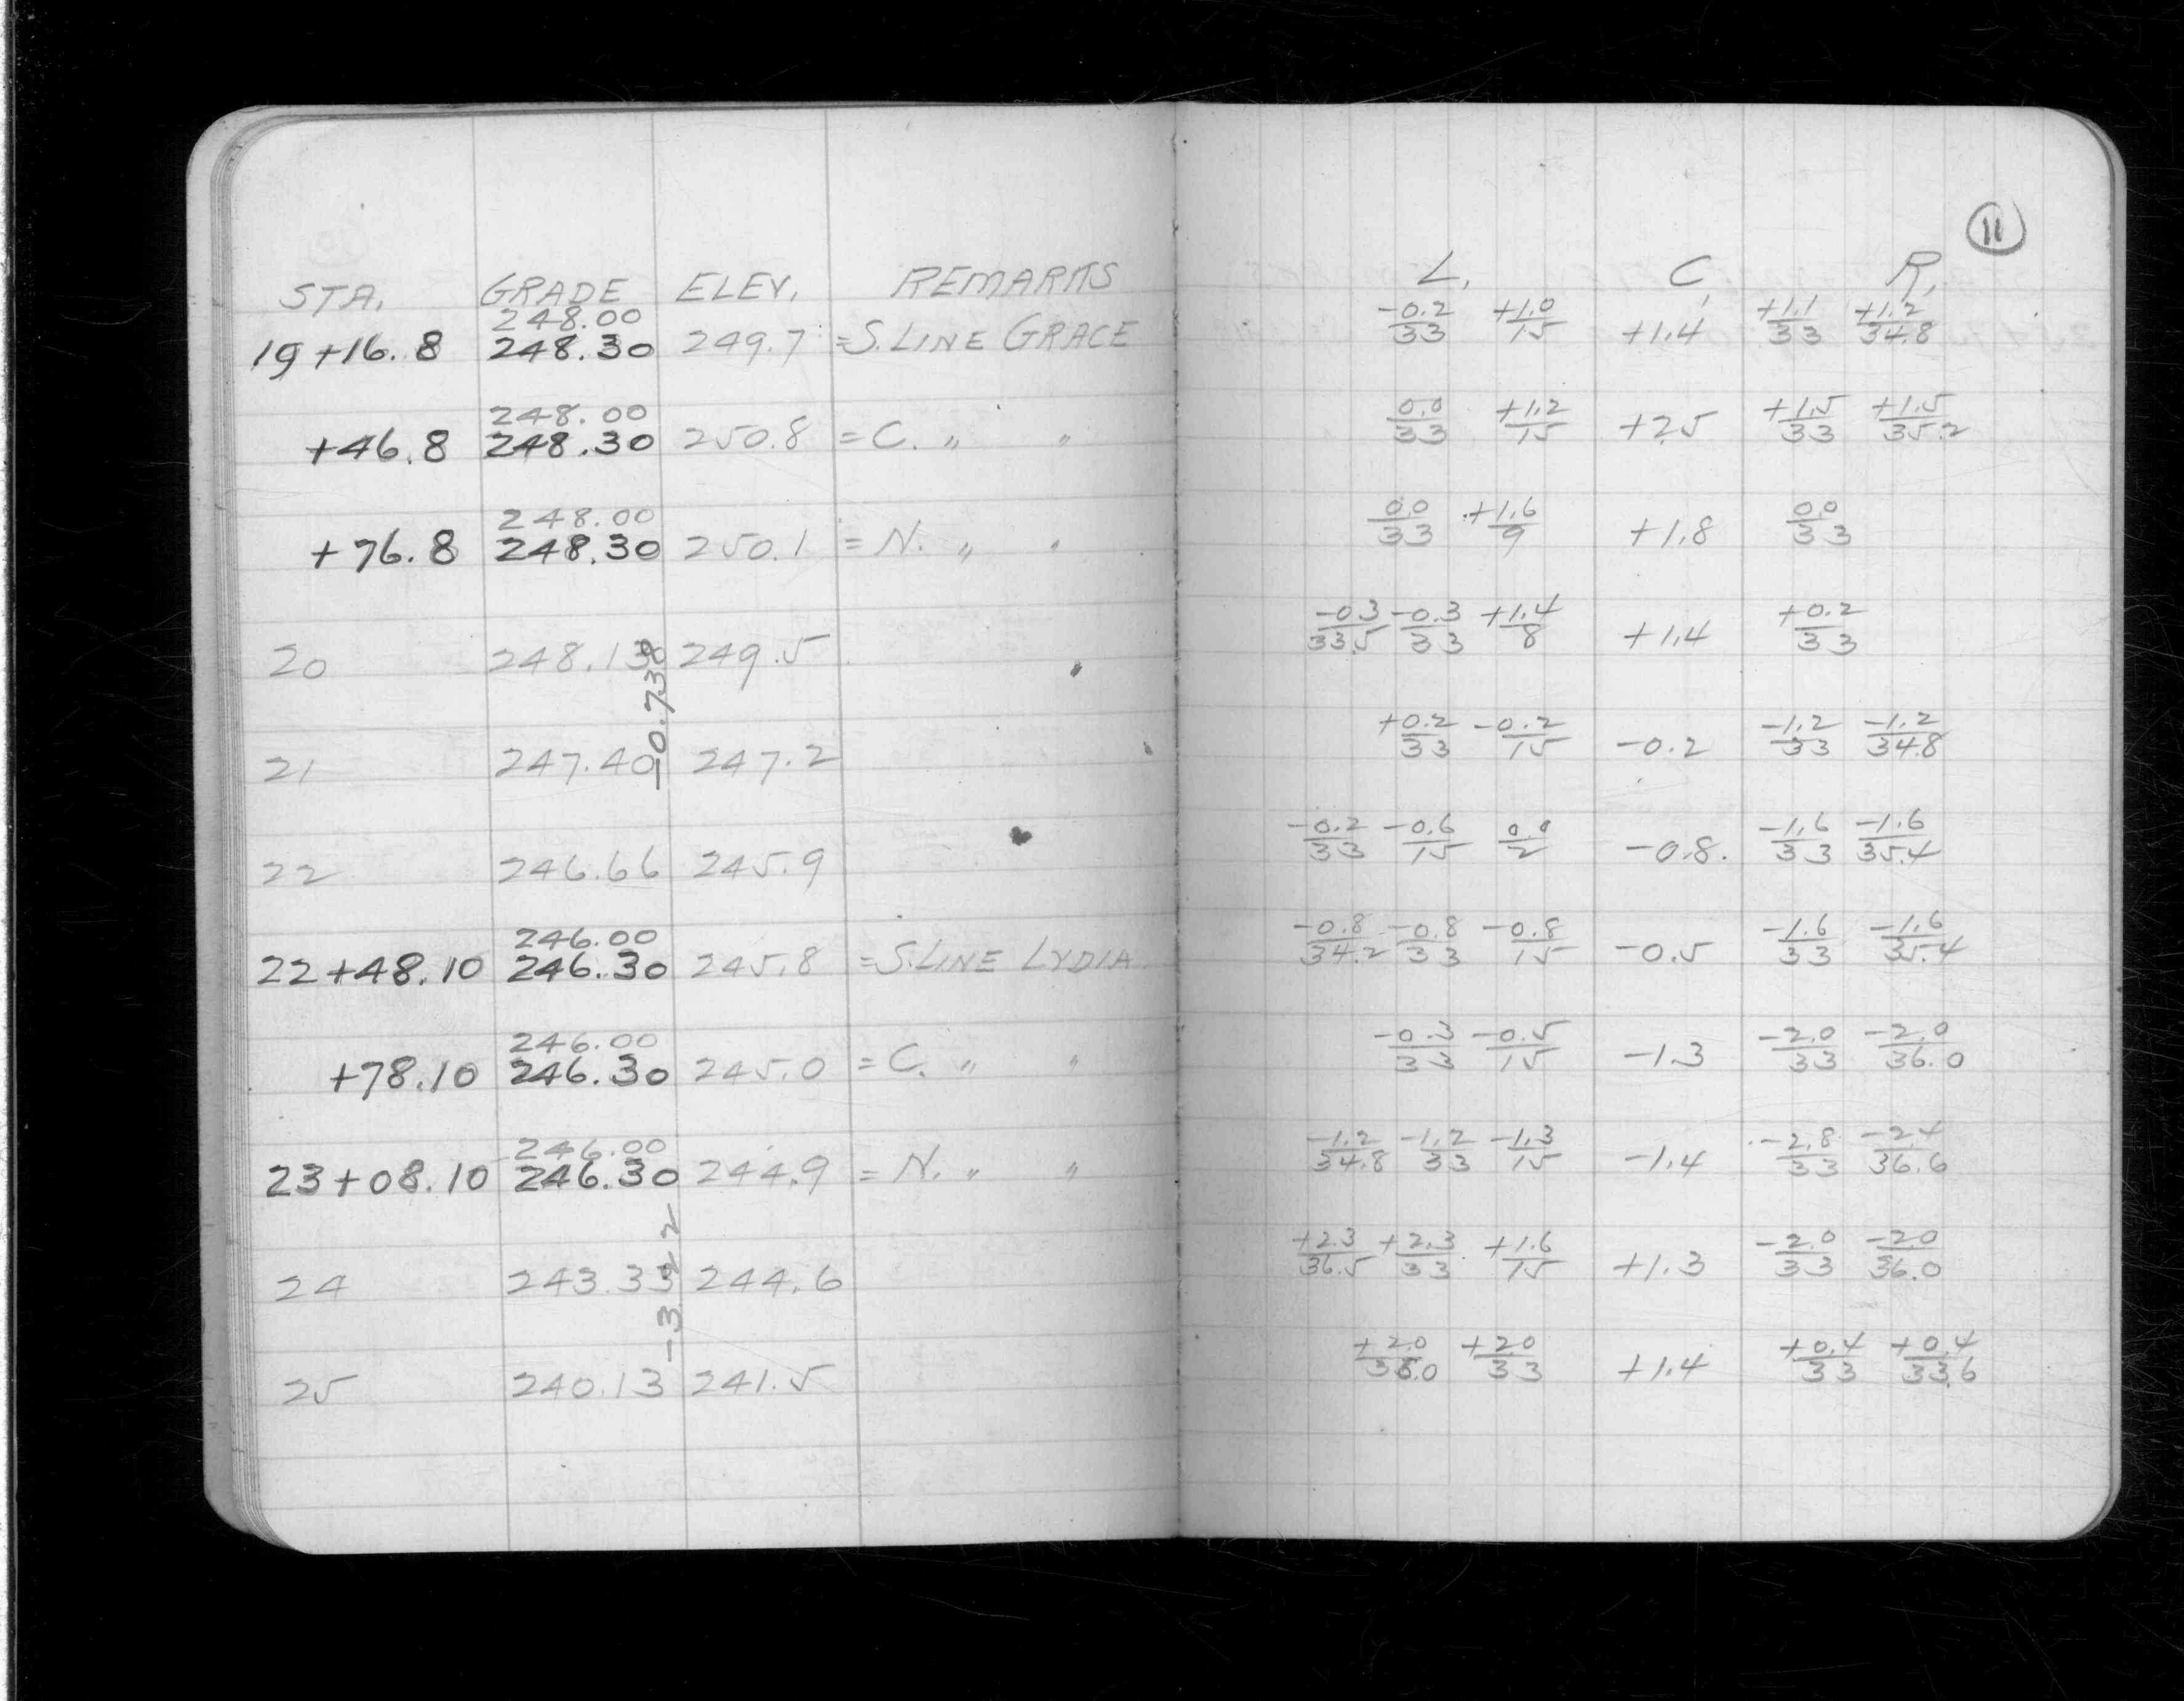 11
STA. GRADE ELEV. REMARKS L. C. R.
248.00 -0.2/33 +1.0/15 +1.1/33 +1.2/34.8
19+16.8 248.30 249.7 =S. LINE GRACE +1.4
248.00 0.0/33 +1.2/15 +1.5/33 +1.5/35.2
+46.8 248.30 250.8 = C. " " +2.5
248.00 0.0/33 +1.6/9 0.0/33
+76.8 248.30 250.1 = N. " " +1.8
20 248.13 249.5 -0.3/33.5 -0.3/33 +1.4/8 +1.4 +0.2/33
-0.738
21 247.40 247.2 +0.2/33 -0.2/15 -0.2 -1.2/33 -1.2/34.8
22 246.66 245.9 -0.2/33 -0.6/15 0.0/2 -0.8 -1.6/33 -1.6/35.4
246.00 -0.8/34.2 -0.8/33 -0.8/15 -1.6/33 -1.6/35.4
22+48.10 246.30 245.8 =S. LINE LYDIA -0.5
246.00 -0.3/33 -0.5/15 -2.0/33 -2.0/36.0
+78.10 246.30 245.0 = C. " " -1.3
246.00 -1.2/34.8 -1.2/33 -1.3/15 -2.8/33 -2.4/36.6
23+08.10 246.30 244.9 = N. " " -1.4
24 243.33 244.6 +2.3/36.5 +2.3/33 +1.6/15 +1.3 -2.0/33 -2.0/36.0
25 240.13 241.5 +2.0/36.0 +2.0/33 +1.4 +0.4/33 +0.4/33.6